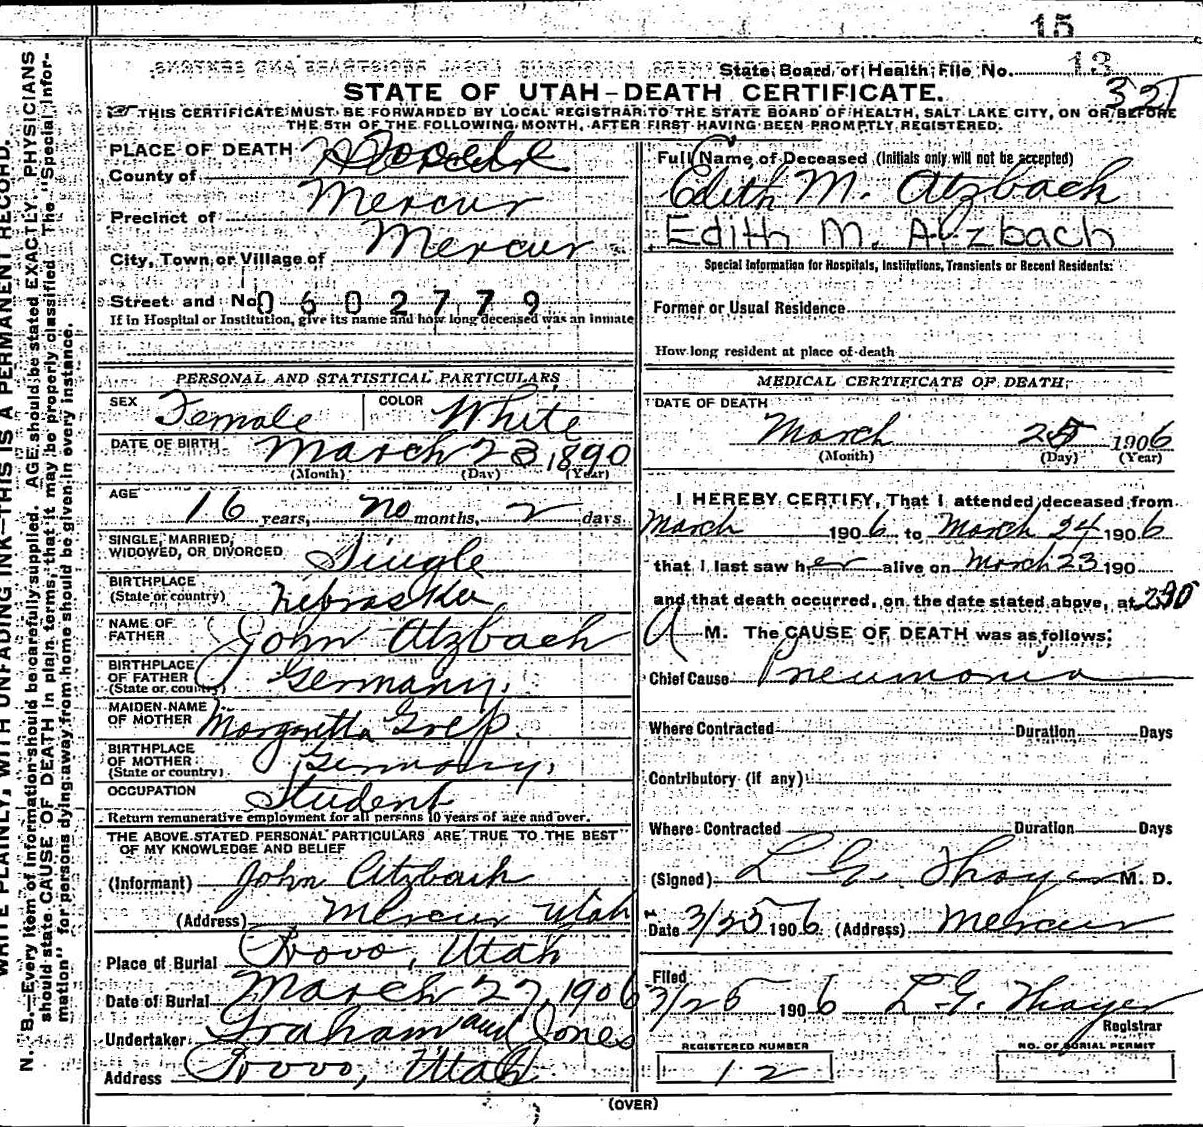 15
State Board of Health File No. 13
321
STATE OF UTAH—DEATH CERTIFICATE.
THIS CERTIFICATE MUST BE FORWARDED BY LOCAL REGISTRAR TO THE STATE BOARD OF HEALTH, SALT LAKE CITY, ON OR BEFORE
THE 5TH OF THE FOLLOWING MONTH, AFTER FIRST HAVING BEEN PROMPTLY REGISTERED.
PLACE OF DEATH
County of Tooele
Precinct of Mercur
City, Town or Village of Mercur
Street and No. 0602779
If in Hospital or Institution, give its name and how long deceased was an inmate
PERSONAL AND STATISTICAL PARTICULARS
SEX Female COLOR White
DATE OF BIRTH March 23, 1890
(Month) (Day) (Year)
AGE 16 years, no months, 2 days
SINGLE, MARRIED,
WIDOWED, OR DIVORCED Single
BIRTHPLACE
(State or country) Nebraska
NAME OF
FATHER John Atzbach
BIRTHPLACE
OF FATHER
(State or country) Germany.
MAIDEN NAME
OF MOTHER Margretta
BIRTHPLACE
OF MOTHER
(State or country) Germany.
OCCUPATION Student
Return remunerative employment for all persons 10 years of age and over.
THE ABOVE STATED PERSONAL PARTICULARS ARE TRUE TO THE BEST
OF MY KNOWLEDGE AND BELIEF
(Informant) John Atzbach
(Address) Mercur Utah
Place of Burial Provo, Utah
Date of Burial March 27, 1906
Undertaker Graham and Jones
Address Provo, Utah
Full Name of Deceased (Initials only will not be accepted)
Edith M. Atzbach
Edith M. Atzbach
Special Information for Hospitals, Institutions, Transients or Recent Residents:
Former or Usual Residence
How long resident at place of death
MEDICAL CERTIFICATE OF DEATH
DATE OF DEATH
March 25 1906
(Month) (Day) (Year)
I HEREBY CERTIFY, That I attended deceased from
March 1906 to March 24 1906
that I last saw her alive on March 23 190
and that death occurred, on the date stated above, at 230
A M. The CAUSE OF DEATH was as follows:
Chief Cause Pneumonia
Where Contracted Duration Days
Contributory (if any)
Where Contracted Duration Days
(Signed) L. G. Thayer M. D.
Date 3/25 1906 (Address) Mercur
Filed
3/25 1906 L. G. Thayer
Registrar
REGISTERED NUMBER
12
NO. OF BURIAL PERMIT
(OVER)
WRITE PLAINLY, WITH UNFADING INK—THIS IS A PERMANENT RECORD.
N. B.—Every item of information should be carefully supplied. AGE should be stated EXACTLY. PHYSICIANS
should state CAUSE OF DEATH in plain terms, that it may be properly classified. The "Special Infor-
mation" for persons dying away from home should be given in every instance.